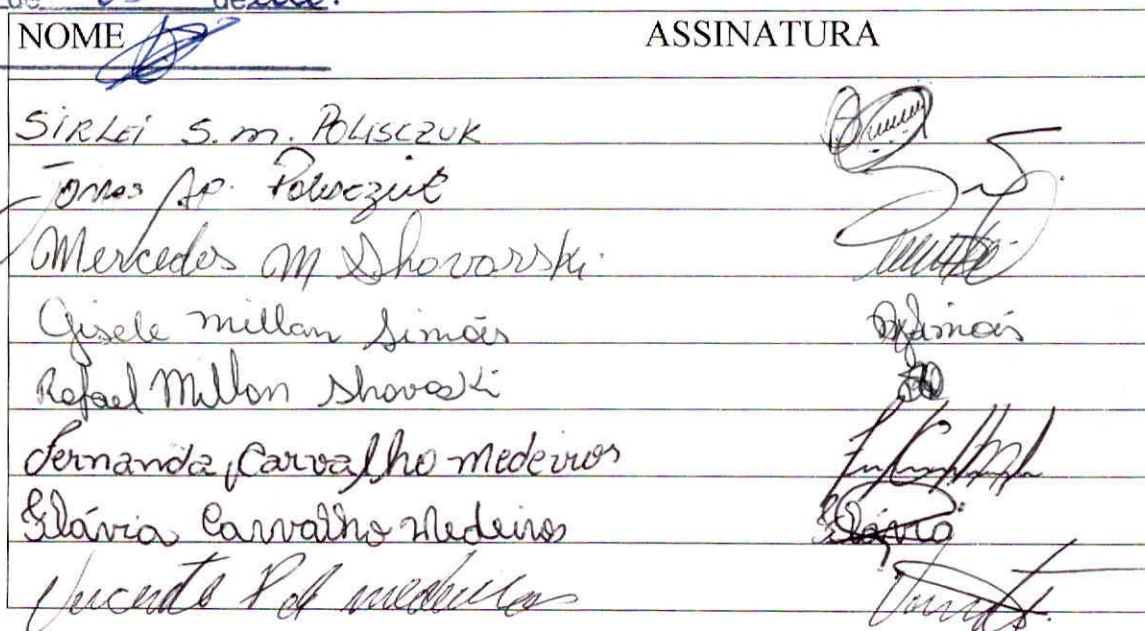 de
NOME ASSINATURA
SIRLEI S. M. POLISCZUK
Jonas Ap. Polisczuk
Mercedes M Shovarski
Gisele Millan Simões GSimões
Rafael Millan Shovoski
Fernanda Carvalho Medeiros
Flávia Carvalho Medeiros Flávia
Vicente P de medeiros